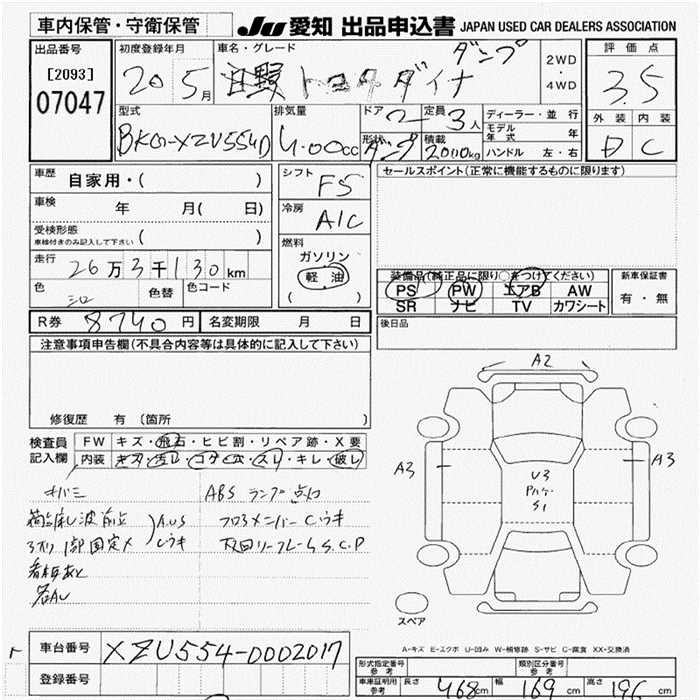 車内保管・守衛保管 JU 愛知 出品申込書 JAPAN USED CAR DEALERS ASSOCIATION
出品番号 [2093] 07047
初度登録年月 20 5月
車名・グレード トヨタ ダイナ ダンプ
2WD・4WD
評価点 3.5
外装 D 内装 C
型式 BKG-XZU554D
排気量 4.00cc
ドア 2
形状 ダンプ
定員 3人
積載 2000kg
ディーラー・並行
モデル年式 年
ハンドル 左・右
車歴 自家用・( )
車検 年 月( 日)
受検形態 ( )
車検付きのみ記入して下さい
走行 26万3千130km
色 シロ 色替 色コード
シフト F5
冷房 A/C
燃料 ガソリン 軽油 ( )
セールスポイント(正常に機能するものに限ります)
装備品(純正品に限り○をつけてください)
PS PW エアB AW
SR ナビ TV カワシート
新車保証書 有・無
R券 8740円 名変期限 月 日
後日品
注意事項申告欄(不具合内容等は具体的に記入して下さい)
修復歴 有 (箇所 )
検査員記入欄
FW キズ・飛石・ヒビ割・リペア跡・X要
内装 キズ・汚レ・コゲ・穴・スレ・キレ・破レ
ABS ランプ点灯
A2
A3
A3
U3
S1
スペア
A-キズ E-エクボ U-凹み W-補修跡 S-サビ C-腐食 XX-交換済
車台番号 XZU554-0002017
登録番号
形式指定番号 参考
類別区分番号 参考
車庫証明用 参考 長さ 468cm 幅 169cm 高さ 196cm